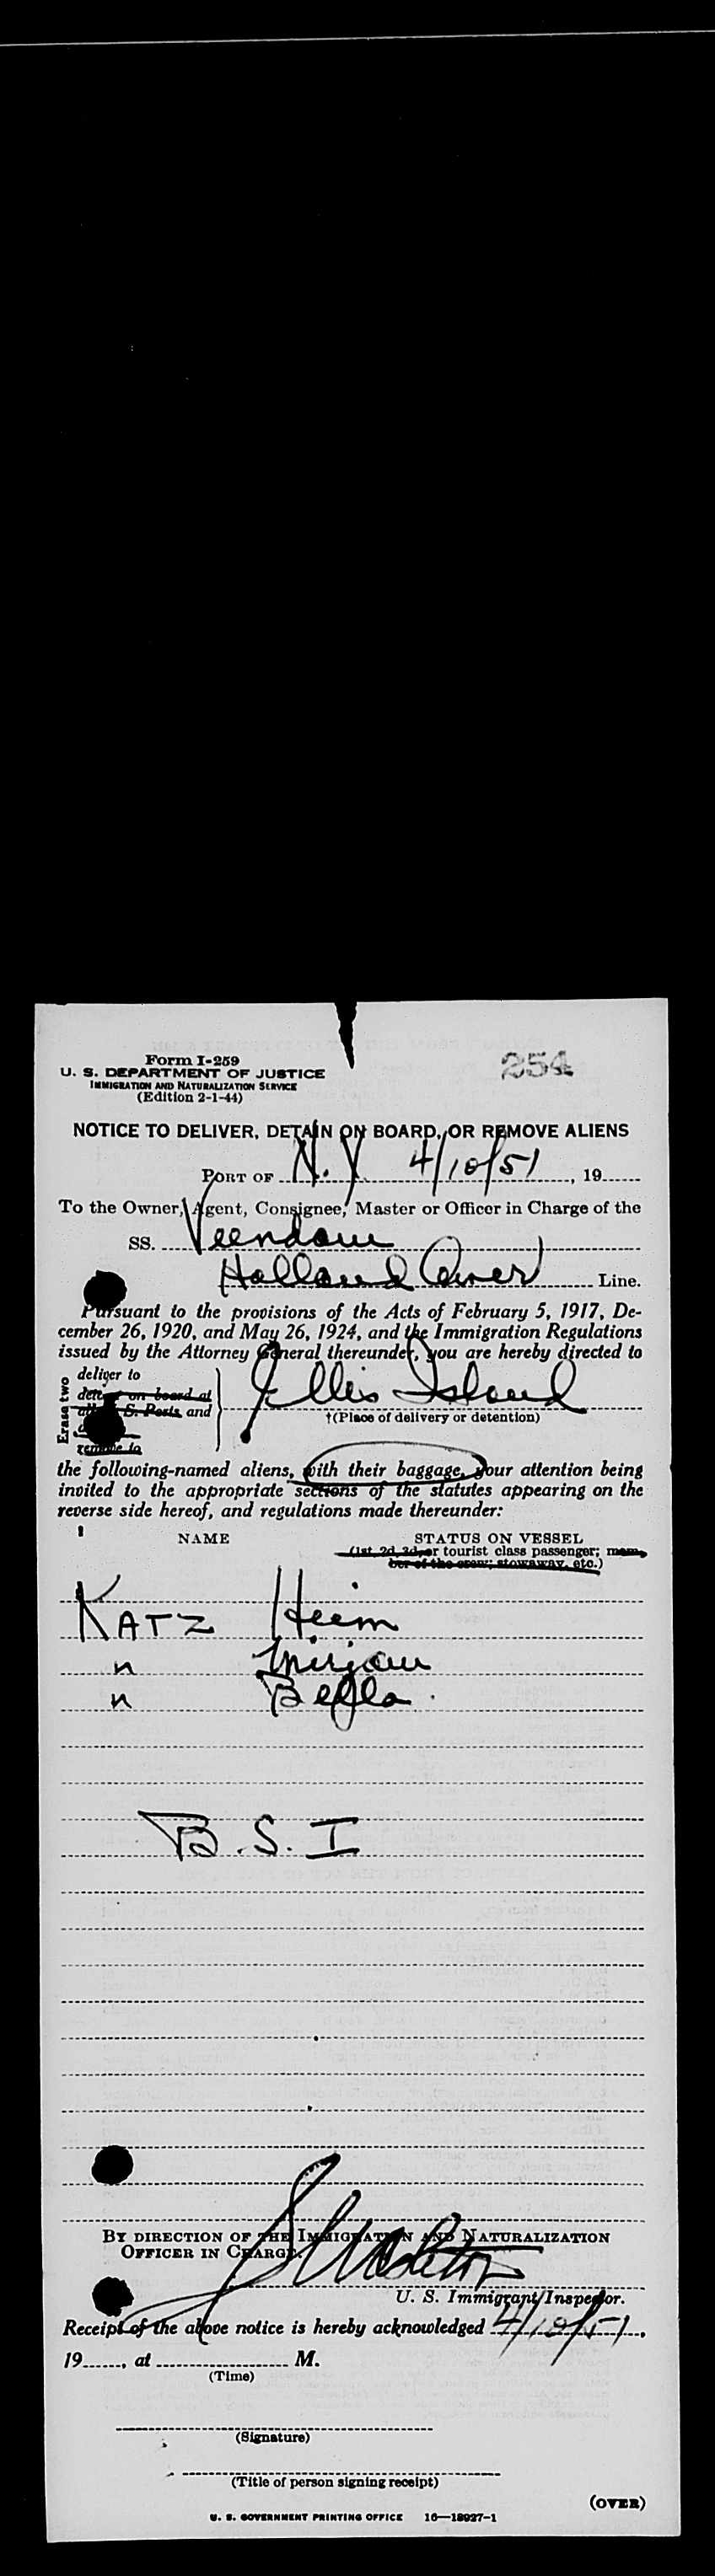 Form I-259
254
U. S. DEPARTMENT OF JUSTICE
IMMIGRATION AND NATURALIZATION SERVICE
(Edition 2-1-44)
NOTICE TO DELIVER, DETAIN ON BOARD, OR REMOVE ALIENS
PORT OF N.Y. 4/10/51, 19
To the Owner, Agent, Consignee, Master or Officer in Charge of the
SS. Veendam
Holland Amer Line.
Pursuant to the provisions of the Acts of February 5, 1917, De-
cember 26, 1920, and May 26, 1924, and the Immigration Regulations
issued by the Attorney General thereunder, you are hereby directed to
Erase two
deliver to
on board at
S. Ports and
remove to
Ellis Island
†(Place of delivery or detention)
the following-named aliens, with their baggage, your attention being
invited to the appropriate sections of the statutes appearing on the
reverse side hereof, and regulations made thereunder:
NAME STATUS ON VESSEL
(1st, 2d, 3d, or tourist class passenger; mem-
ber of the crew; stowaway, etc.)
KATZ Heim
" Mirjam
" Bella
B.S.I
BY DIRECTION OF THE IMMIGRATION AND NATURALIZATION
OFFICER IN CHARGE.
U. S. Immigrant Inspector.
Receipt of the above notice is hereby acknowledged 4/10/51,
19, at M.
(Time)
(Signature)
(Title of person signing receipt)
(OVER)
U. S. GOVERNMENT PRINTING OFFICE 16—18927-1